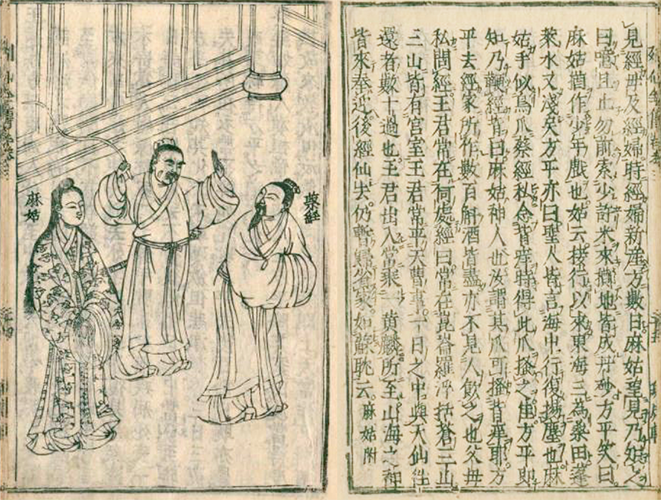 見經母及經婦時經婦新產方數日麻姑望見乃知之
曰噫且止勿前索少許米來擲地皆成丹砂方平笑曰
麻姑猶作少年戲也姑云接行以來東海三為桑田蓬
萊水又淺矣方平亦曰聖人皆言海中行復揚塵也麻
姑手似鳥爪蔡經私念背痒時得此爪搔之佳方平即
知乃鞭經背曰麻姑神人也汝謂其爪可搔背痒耶方
平去經家所作數百斛酒皆盡亦不見人飲之也父母
私問經王君常在何處經曰常在崑崙羅浮括蒼三山
三山皆有宮室王君常平天曹事一日之中與天仙往
還者數十過也王君出入常乘一黃麟所至山海之神
皆來奉迎後經仙去仍暫歸省家如蘇耽云 麻姑附
蔡經
麻姑